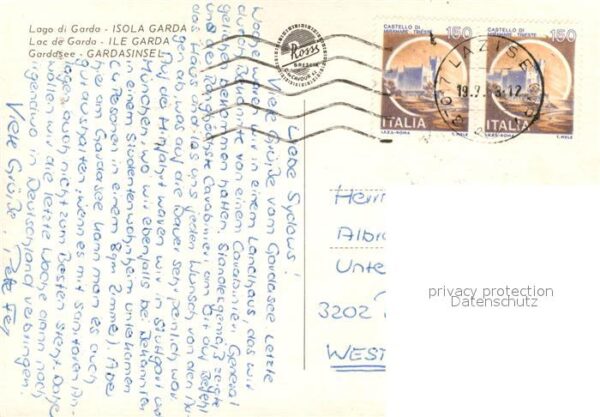 Lago di Garda - ISOLA GARDA
Lac de Garda - ILE GARDA
Gardasee - GARDASINSEL
Rossi
BRESCIA
CASTELLO DI
MIRAMARE · TRIESTE
150
ITALIA
CASTELLO DI
MIRAMARE · TRIESTE
150
ITALIA
LAZISE
Liebe Syelows!
Viele Grüße vom Gardasee. Letzte
Woche waren wir in einem Landhaus, das wir
durch Bekannte von einem Carabinieri General
geliehen bekommen hatten. Standesgemäß zeigte
uns der ranghöchste Carabinieri am Ort auf Befehl
das Haus und las uns jeden Wunsch von den Au-
gen ab, was auf die Dauer sehr peinlich war.
Auf der Hinfahrt waren wir in Stuttgart und
München, wo wir ebenfalls bei Bekannten
in einem Studentenwohnheim unterkamen
(4 Personen in einem 8qm Zimmer). Aber
hier am Gardasee kann man es auch
gut aushalten, wenn es mit sanitären An-
lagen auch nicht zum Besten steht. Daher
wollen wir die letzte Woche dann noch
irgendwo in Deutschland verbringen.
Viele Grüße,
Herrn
Albr
Unte
3202
WEST
privacy protection
Datenschutz